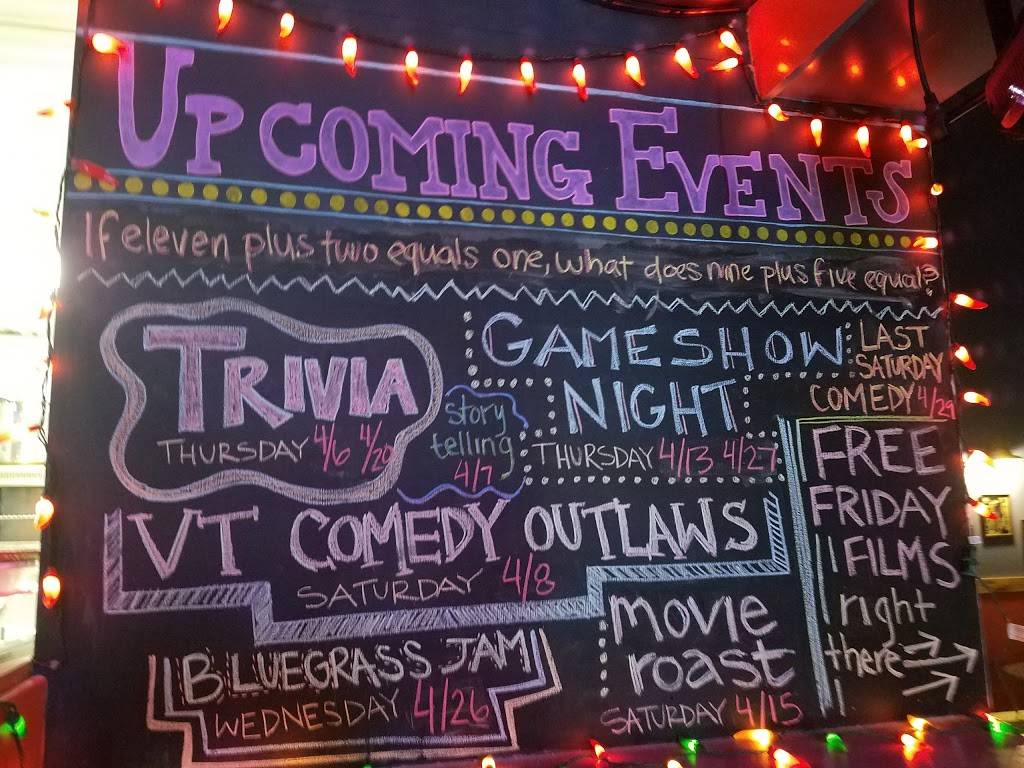 UPCOMING EVENTS
If eleven plus two equals one, what does nine plus five equal?
TRIVIA
THURSDAY 4/6 4/20
story
telling
4/7
GAMESHOW
NIGHT
THURSDAY 4/13 4/27
LAST
SATURDAY
COMEDY 4/29
VT COMEDY OUTLAWS
SATURDAY 4/8
FREE
FRIDAY
FILMS
right
there
BLUEGRASS JAM
WEDNESDAY 4/26
movie
roast
SATURDAY 4/15